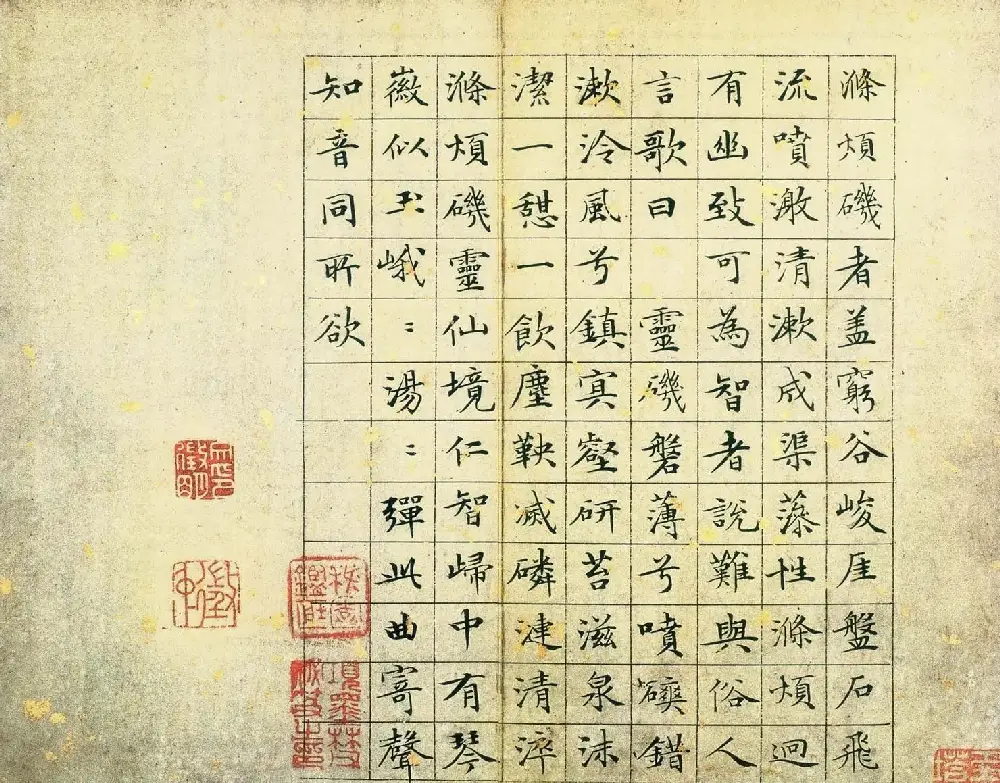 滌煩磯者盖窮谷峻厓盤石飛
流噴激清漱成渠藻性滌煩迥
有幽致可為智者說難與俗人
言歌曰 靈磯磐薄兮噴礙錯
漱泠風兮鎮冥壑研苔滋泉沫
潔一憩一飲塵鞅滅磷漣清渟
滌煩磯靈仙境仁智歸中有琴
徽似玉峨〻湯〻彈此曲寄聲
知音同所欲
徵明